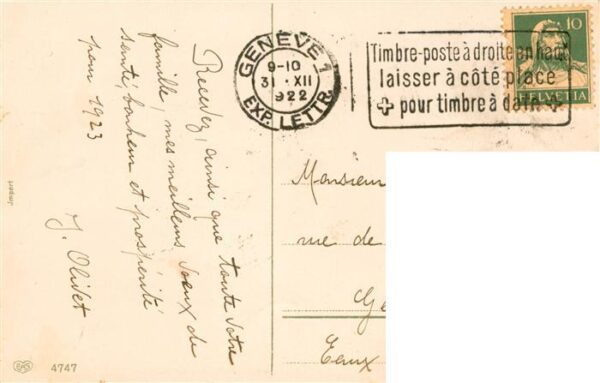 Recevez, ainsi que toute votre
famille, mes meilleurs voeux de
santé, bonheur et prospérité
pour 1923
J. Olivet
GENÈVE 1
9-10
31.XII
1922
EXP. LETTR.
Timbre-poste à droite en haut
laisser à côté place
pour timbre à date
10
HELVETIA
Monsieur
rue de
Ge
Eaux
4747